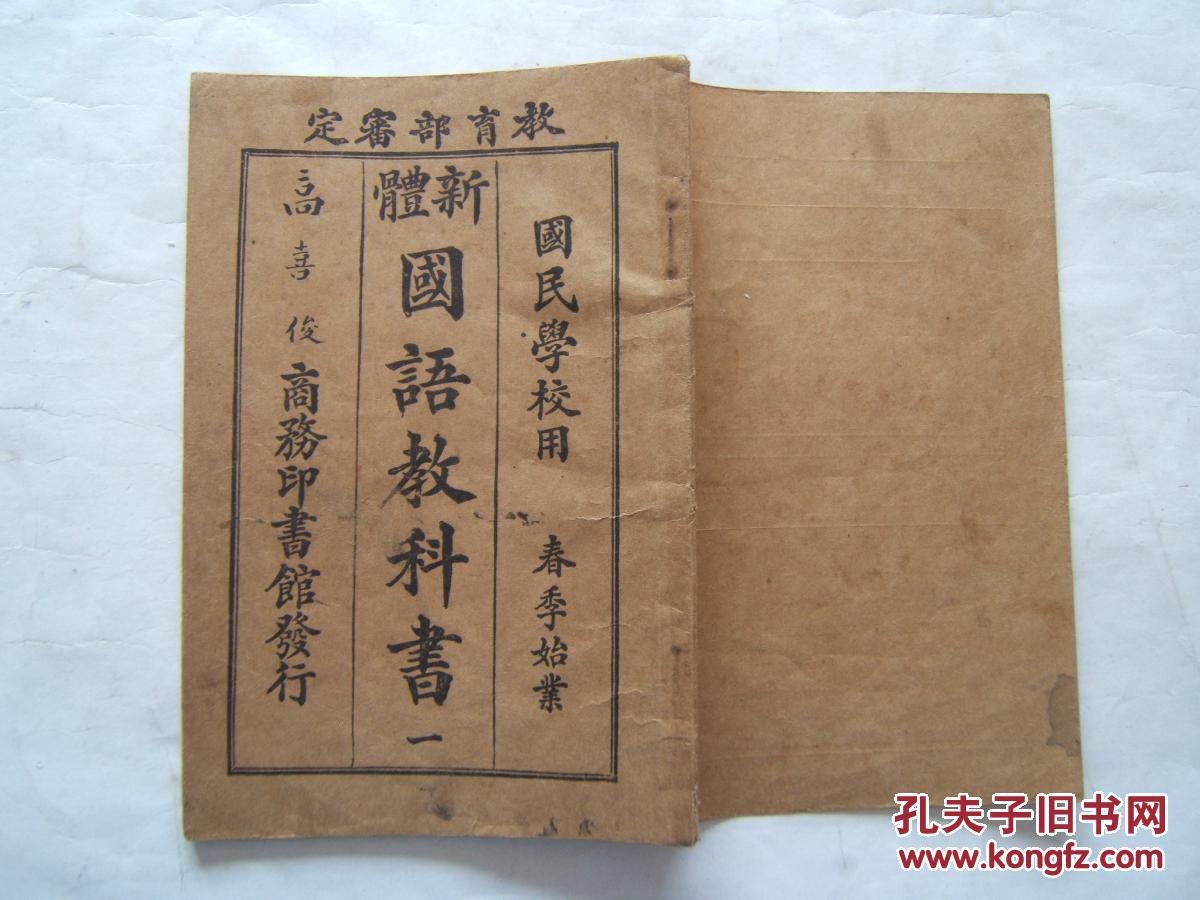 教育部審定
國民學校用 春季始業
新體
國語教科書 一
高喜俊
商務印書館發行
孔夫子旧书网
www.kongfz.com